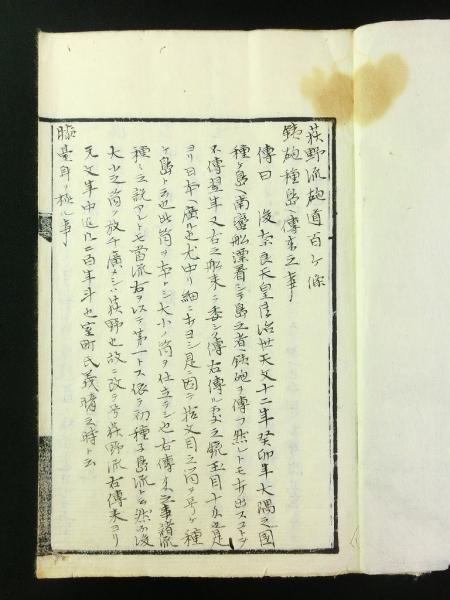 荻野流砲道百ケ條
銕砲種島傳来之事
傳曰 後奈良天皇御治世天文十二年癸卯年大隅之國
種ケ島ヘ南蛮舩漂着シテ島之者ヘ銕砲ヲ傳フ然レトモ
不傳翌年又右之舩来ニ委シク傳右傳ル処之筒玉目十匁也是
ヨリ日本ヘ廣ル也尤中リ細ニキヨシ是ニ因テ拾文目之筒ヲ号ケ種
ケ島ト云也此筒ヲ本トシ大小ノ筒ヲ仕立テシ也右傳来之事諸流
種々之説アレトモ當流右ヲ以テ第一トス依テ初種子島流ト云然ル後
大小之筒ヲ放チ廣メシハ荻野也故ニ改テ号荻野流右傳来ヨリ
元文年中迄凡二百年斗也室町氏義晴之時ト云
臨臺耳ヲ極ル事